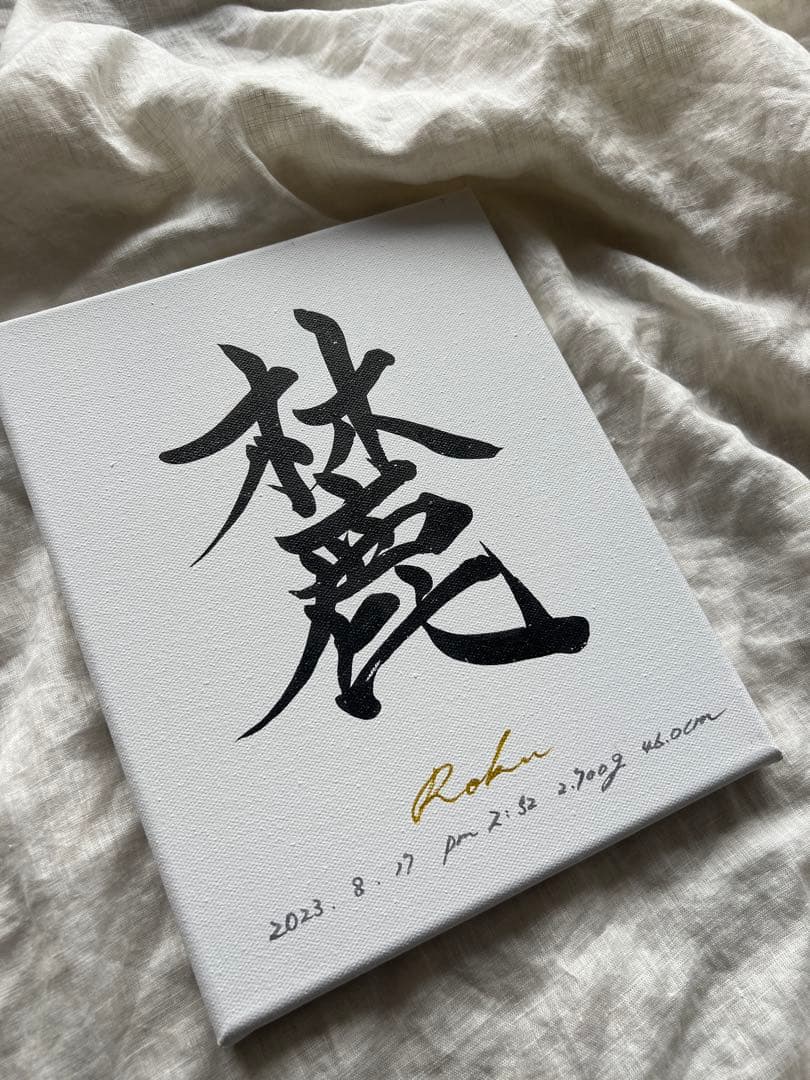 麓
Roku
2023. 8. 17 pm 2:52 2.700g 46.0cm